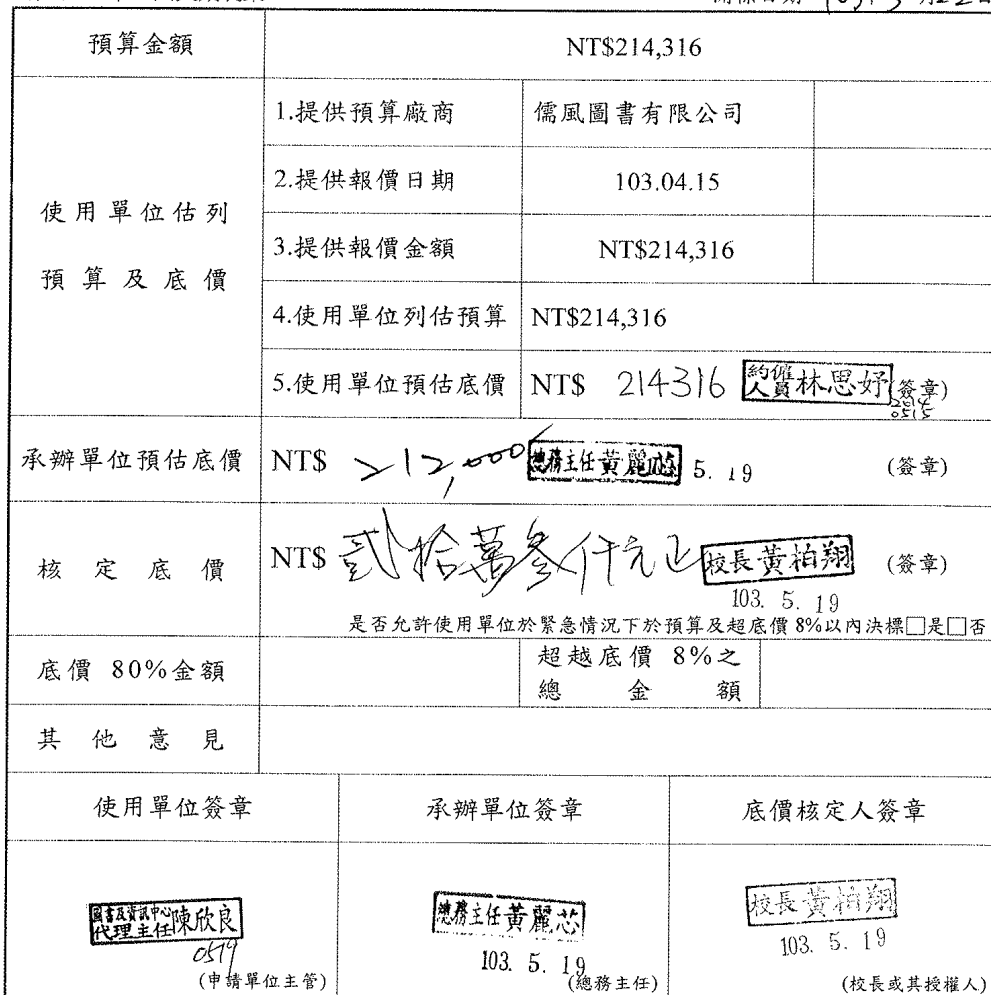 預算金額 NT$214,316
使用單位估列預算及底價
1.提供預算廠商 儒風圖書有限公司
2.提供報價日期 103.04.15
3.提供報價金額 NT$214,316
4.使用單位列估預算 NT$214,316
5.使用單位預估底價 NT$ 214316 約僱人員林思妤 (簽章)
2014
0515
承辦單位預估底價 NT$ 212,000 總務主任黃麗芯 5. 19 (簽章)
核定底價 NT$ 貳拾萬參仟元正 校長黃柏翔 (簽章)
103. 5. 19
是否允許使用單位於緊急情況下於預算及超底價 8%以內決標□是□否
底價 80%金額 超越底價 8%之總金額
其他意見
使用單位簽章 承辦單位簽章 底價核定人簽章
圖書及資訊中心代理主任陳欣良 總務主任黃麗芯 校長黃柏翔
0519 103. 5. 19 103. 5. 19
(申請單位主管) (總務主任) (校長或其授權人)